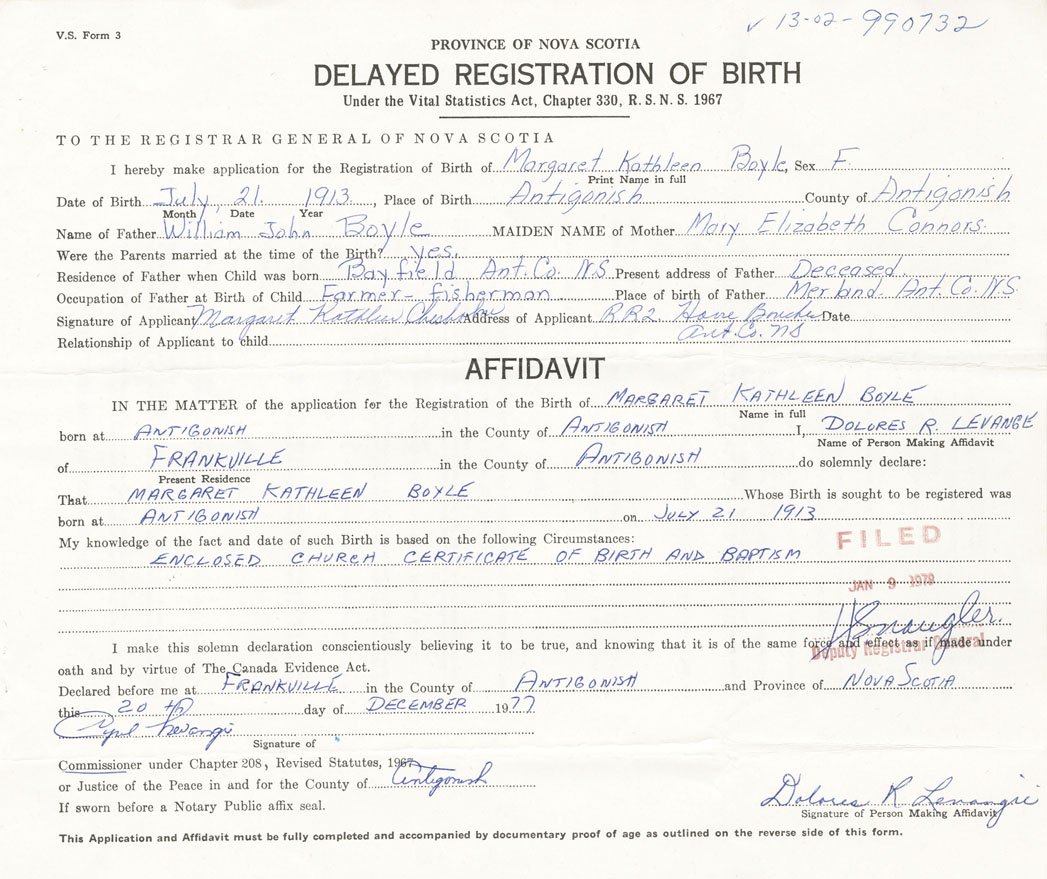 ✓ 13-02-990732
V.S. Form 3
PROVINCE OF NOVA SCOTIA
DELAYED REGISTRATION OF BIRTH
Under the Vital Statistics Act, Chapter 330, R.S.N.S. 1967
TO THE REGISTRAR GENERAL OF NOVA SCOTIA
I hereby make application for the Registration of Birth of Margaret Kathleen Boyle, Sex F.
Print Name in full
Date of Birth July 21. 1913, Place of Birth Antigonish County of Antigonish
Month Date Year
Name of Father William John Boyle MAIDEN NAME of Mother Mary Elizabeth Connors.
Were the Parents married at the time of the Birth? yes.
Residence of Father when Child was born Bayfield Ant. Co. N.S Present address of Father Deceased
Occupation of Father at Birth of Child Farmer - fisherman Place of birth of Father Merland. Ant. Co. N.S.
Signature of Applicant Margaret Kathleen Chisholm Address of Applicant RR2. Havre Boucher Date
Ant. Co. NS
Relationship of Applicant to child
AFFIDAVIT
IN THE MATTER of the application for the Registration of the Birth of MARGARET KATHLEEN BOYLE
Name in full
born at ANTIGONISH in the County of ANTIGONISH I, DOLORES R. LEVANGE
Name of Person Making Affidavit
of FRANKVILLE in the County of ANTIGONISH do solemnly declare:
Present Residence
That MARGARET KATHLEEN BOYLE Whose Birth is sought to be registered was
born at ANTIGONISH on JULY 21 1913
My knowledge of the fact and date of such Birth is based on the following Circumstances:
ENCLOSED CHURCH CERTIFICATE OF BIRTH AND BAPTISM
FILED
JAN 9 1978
Deputy Registrar General
I make this solemn declaration conscientiously believing it to be true, and knowing that it is of the same force and effect as if made under
oath and by virtue of The Canada Evidence Act.
Declared before me at FRANKVILLE in the County of ANTIGONISH and Province of NOVA SCOTIA
this 20 th day of DECEMBER 1977
Signature of
Commissioner under Chapter 208, Revised Statutes, 1967
or Justice of the Peace in and for the County of Antigonish
If sworn before a Notary Public affix seal.
Dolores R Levangie
Signature of Person Making Affidavit
This Application and Affidavit must be fully completed and accompanied by documentary proof of age as outlined on the reverse side of this form.